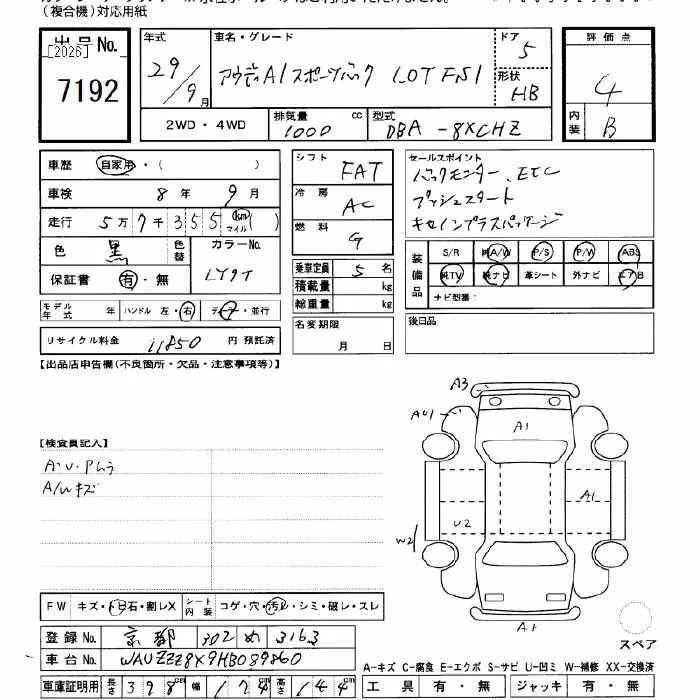 (複合機)対応用紙
出品No.
[2026]
7192
年式
29/9月
車名・グレード
アウディA1スポーツバック 1.0T FSI
ドア
5
形状
HB
評価点
4
内装
B
2WD・4WD
排気量
1000 cc
型式
DBA-8XCHZ
車歴 自家用・( )
車検 8年 9月
走行 5万7千355 km マイル( )
色 黒 色替
カラーNo.
LY9T
保証書 有・無
シフト FAT
冷房 AC
燃料 G
セールスポイント
バックモニター、ETC
プッシュスタート
キセノンプラスパッケージ
装備品
S/R 純A/W P/S P/W ABS
純TV 純ナビ 革シート 外ナビ エアB
ナビ型番:
乗車定員 5名
積載量 kg
総重量 kg
モデル年式 年 ハンドル 左・右 ディーラー・並行
名変期限
月 日
後日品
リサイクル料金 11850 円 預託済
【出品店申告欄(不良箇所・欠品・注意事項等)】
A3
AU1
A1
A1
U2
W2
A1
スペア
【検査員記入】
A・U・Pムラ
A/Wキズ
FW キズ・トビ石・割レX
シート内装 コゲ・穴・汚レ・シミ・破レ・スレ
登録No. 京都 302 め 3163
車台No. WAUZZZ8X9HB089860
車庫証明用 長さ 398cm 幅 174cm 高さ 144cm
A-キズ C-腐食 E-エクボ S-サビ U-凹ミ W-補修 XX-交換済
工具 有・無 ジャッキ 有・無